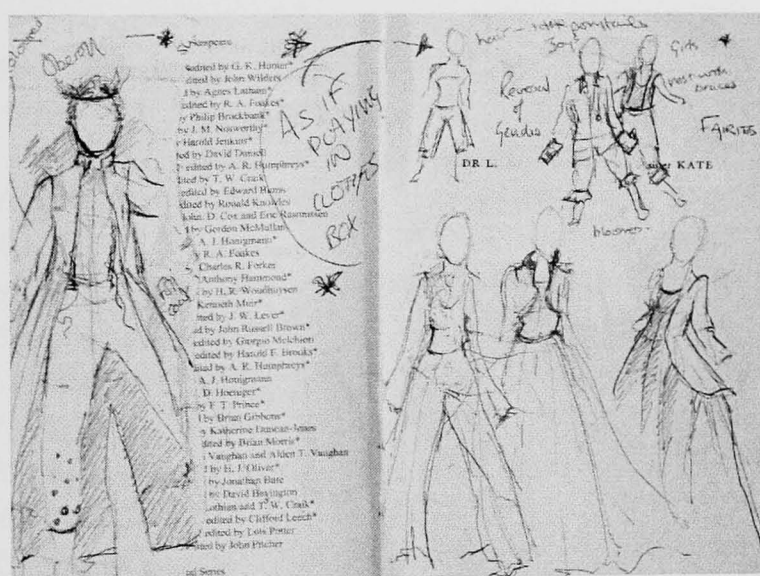 Oberon
edited by G. K. Hunter*
edited by John Wilders
d by Agnes Latham*
edited by R. A. Foakes*
y Philip Brockbank*
by J. M. Nosworthy*
Harold Jenkins*
ted by David Daniell
edited by A. R. Humphreys*
dited by T. W. Craik
edited by Edward Burns
edited by Ronald Knowles
John D. Cox and Eric Rasmussen
d by Gordon McMullan
A. J. Honigmann*
y R. A. Foakes
Charles R. Forker
Anthony Hammond*
by H. R. Woudhuysen
Kenneth Muir*
ited by J. W. Lever*
ed by John Russell Brown*
edited by Giorgio Melchiori
edited by Harold F. Brooks*
dited by A. R. Humphreys*
A. J. Honigmann
D. Hoeniger*
by F. T. Prince*
d by Brian Gibbons*
Katherine Duncan-Jones
dited by Brian Morris*
Vaughan and Alden T. Vaughan
d by H. J. Oliver*
by Jonathan Bate
by David Bevington
Lothian and T. W. Craik*
edited by Clifford Leech*
edited by Lois Potter
ited by John Pitcher
Series
AS IF
PLAYING
IN
CLOTHES
BOX
hair
ponytails
Boys
Girls
braces
Reversal
of
Gender
FAIRIES
DR L.
KATE
bloomers